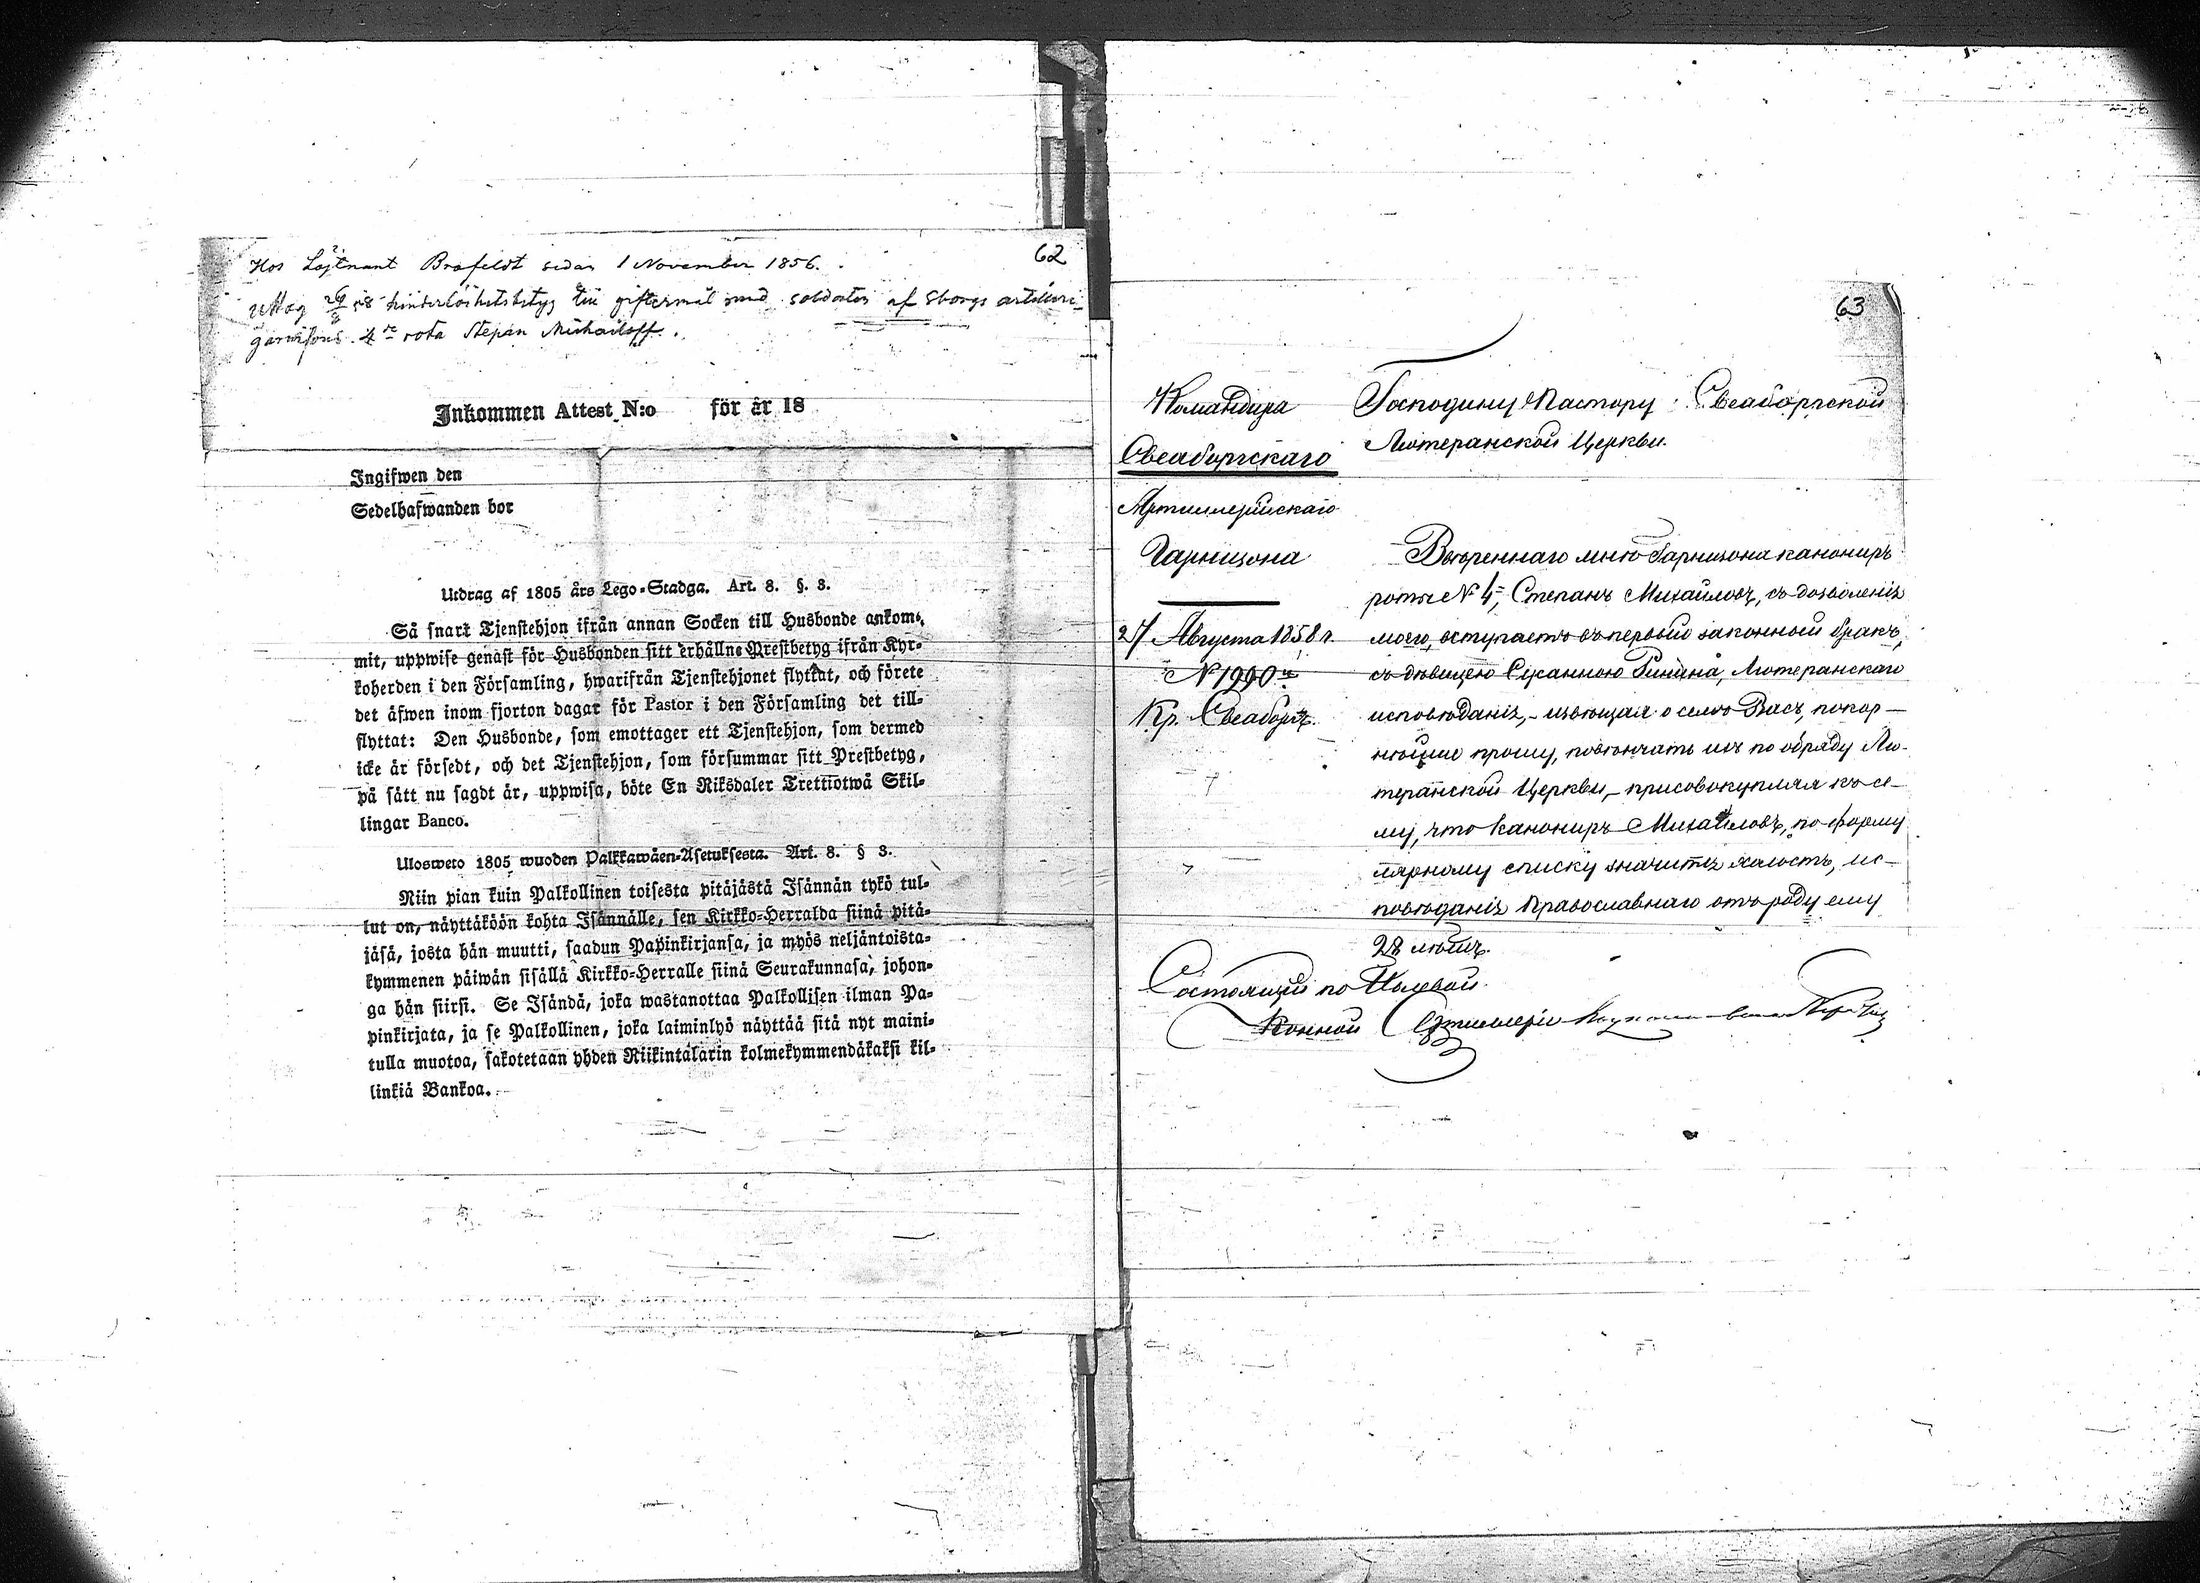 62
Hos Löjtnant Brofeldt sedan 1 November 1856.
uttog 26/8 58 hinderlöshetsbetyg till giftermål med soldaten af Sborgs artilleri
garnisons 4de rota Stepan Michailoff.
Inkommen Attest N:o för år 18
Ingifwen den
Sedelhafwanden bor
Utdrag af 1805 års Lego-Stadga. Art. 8. §. 3.
Så snart Tjenstehjon ifrån annan Socken till Husbonde ankom-
mit, uppwise genast för Husbonden sitt erhållne Prestbetyg ifrån Kyr-
koherden i den Församling, hwarifrån Tjenstehjonet flyttat, och förete
det äfwen inom fjorton dagar för Pastor i den Församling det till-
flyttat: Den Husbonde, som emottager ett Tjenstehjon, som dermed
icke är försedt, och det Tjenstehjon, som försummar sitt Prestbetyg,
på sätt nu sagdt är, uppwisa, böte En Riksdaler Trettiotwå Skil-
lingar Banco.
Ulosweto 1805 wuoden Palkkawäen-Asetuksesta. Art. 8. § 3.
Niin pian kuin Palkollinen toisesta pitäjästä Isännän tykö tul-
lut on, näyttäköön kohta Isännälle, sen Kirkko-Herralda siinä pitä-
jäsä, josta hän muutti, saadun Papinkirjansa, ja myös neljäntoista-
kymmenen päiwän sisällä Kirkko-Herralle siinä Seurakunnasa, johon-
ga hän siirsi. Se Isändä, joka wastanottaa Palkollisen ilman Pa-
pinkirjata, ja se Palkollinen, joka laiminlyö näyttää sitä nyt maini-
tulla muotoa, sakotetaan yhden Riikintalarin kolmekymmendäkaksi kil-
linkiä Bankoa.
63
Командира
Свеаборгскаго
Артиллерійскаго
Гарнизона
27 Августа 1858 г.
№ 1990
Кр. Свеаборгъ.
Господину Пастору Свеаборгской
Лютеранской Церкви.
Ввѣреннаго мнѣ Гарнизона канониръ
роты № 4, Степанъ Михайловъ, съ дозволенія
моего, вступаетъ въ первый законный бракъ,
съ дѣвицею Сусанною Лютеранскаго
исповѣданія, – извѣщая о семъ Васъ, покор-
нѣйше прошу, повѣнчать ихъ по обряду Лю-
теранской Церкви, – присовокупляя къ се-
му, что канониръ Михайловъ, по форму
лярному списку значится холостъ, ис-
повѣданія Православнаго отъ роду ему
28 лѣтъ.
Состоящій по Полевой
Конной Артиллеріи